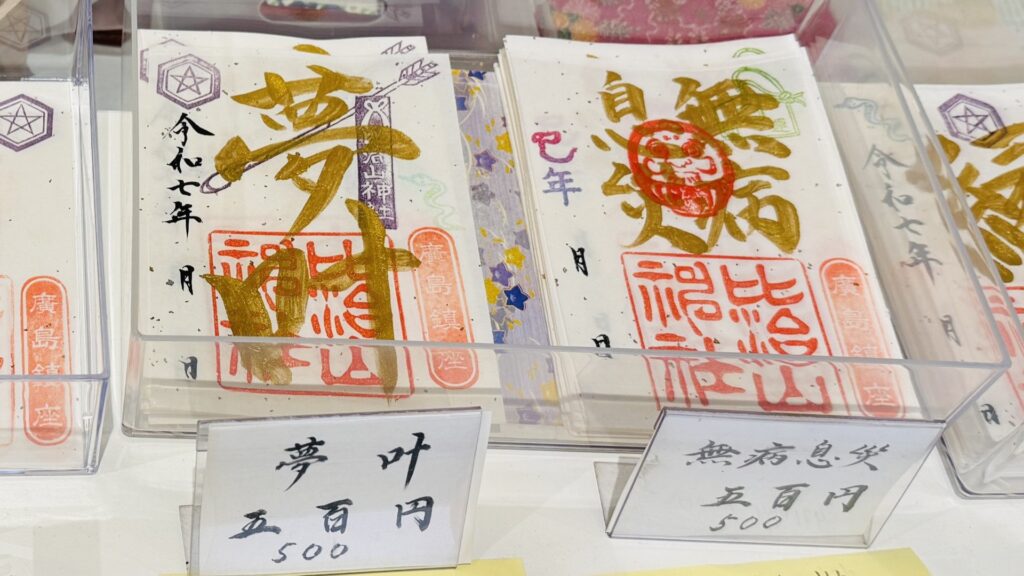 夢叶
令和七年
月
日
比治山神社
廣島鎮座
無病
息災
巳年
月
日
比治山
神社
廣島鎮座
令和七年
月
日
廣島鎮座
夢 叶
五百円
500
無病息災
五百円
500